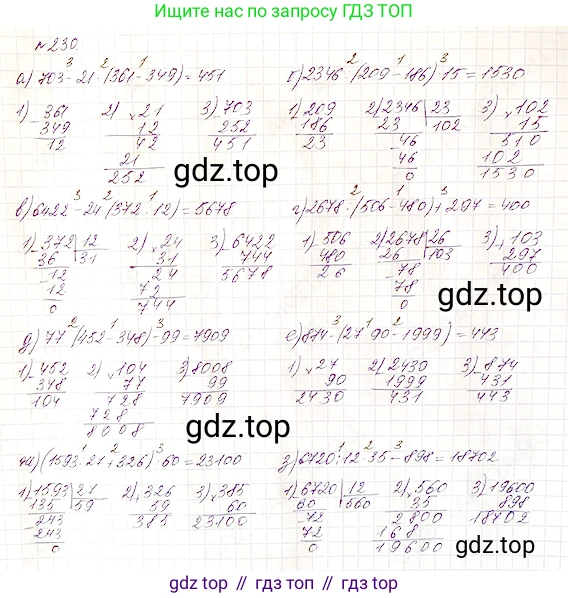 Ищите нас по запросу ГДЗ ТОП
№230.
3 2 1
а) 703-21·(361-349)=451
1 3
б) 2346:(209-186)·15=1530
1) 361 2) 21 3) 703
349 12 252
12 42 451
21
252
1) 209 2) 2346 23 3) 102
186 23 102 15
23 46 510
46 102
0 1530
gdz.top
3 2 1
в) 6422-24·(372:12)=5678
2 1 3
г) 2678:(506-480)+297=400
1) 372 12 2) 24 3) 6422
36 31 31 744
12 24 5678
12 72
0 744
1) 506 2) 2678 26 3) 103
480 26 103 297
26 78 400
78
0
gdz.top
2 1 3
д) 77·(452-348)-99=7909
3 1 2
е) 874-(27·90-1999)=443
1) 452 2) 104 3) 8008
348 77 99
104 728 7909
728
8008
1) 27 2) 2430 3) 874
90 1999 431
2430 431 443
1 2 3
ж) (1593:27+326)·60=23100
1 2 3
з) 6720:12·35-898=18702
1) 1593 27 2) 326 3) 385
135 59 59 60
243 385 23100
243
0
1) 6720 12 2) 560 3) 19600
60 560 35 898
72 2800 18702
72 168
0 19600
gdz.top
gdz.top
gdz.top // гдз топ // gdz.top